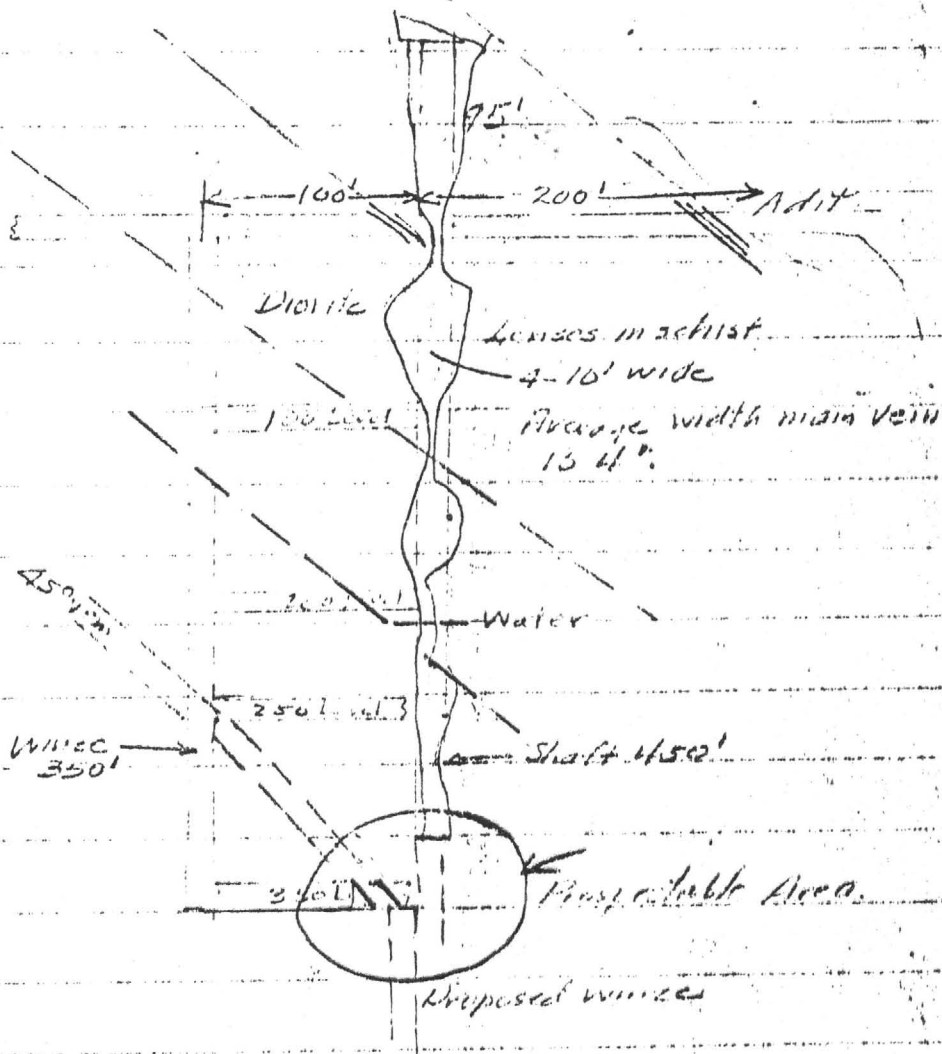 75'
100'
200'
Adit
Diorite
Lenses in schist
4-10' wide
100 Level
Average width main vein
is 4".
45° vein
200 Level
Water
250 Level
Winze
350'
Shaft 450'
350 L
Prospectable Area.
Proposed winze